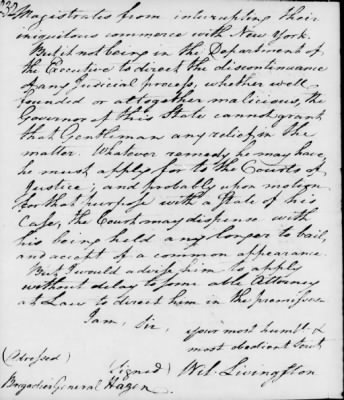 232
Magistrates from interrupting their
iniquitous commerce with New York.
But it not being in the Department of
the Executive to direct the discontinuance
of any Judicial process, whether well
founded or altogether malicious, the
Governor of this State cannot grant
that Gentleman any relief in the
matter. Whatever remedy he may have,
he must apply for to the Courts of
Justice; and probably upon motion
for that purpose with a State of his
Case, the Court may dispense with
his being held any longer to bail,
and accept of a common appearance.
But I would advise him to apply
without delay to some able Attorney
at Law to direct him in the premisses.
I am, Sir,
your most humbl. &
most obedient Servt
(Adressed) (signed) Wil. Livingston
Brigadier General Hazen.